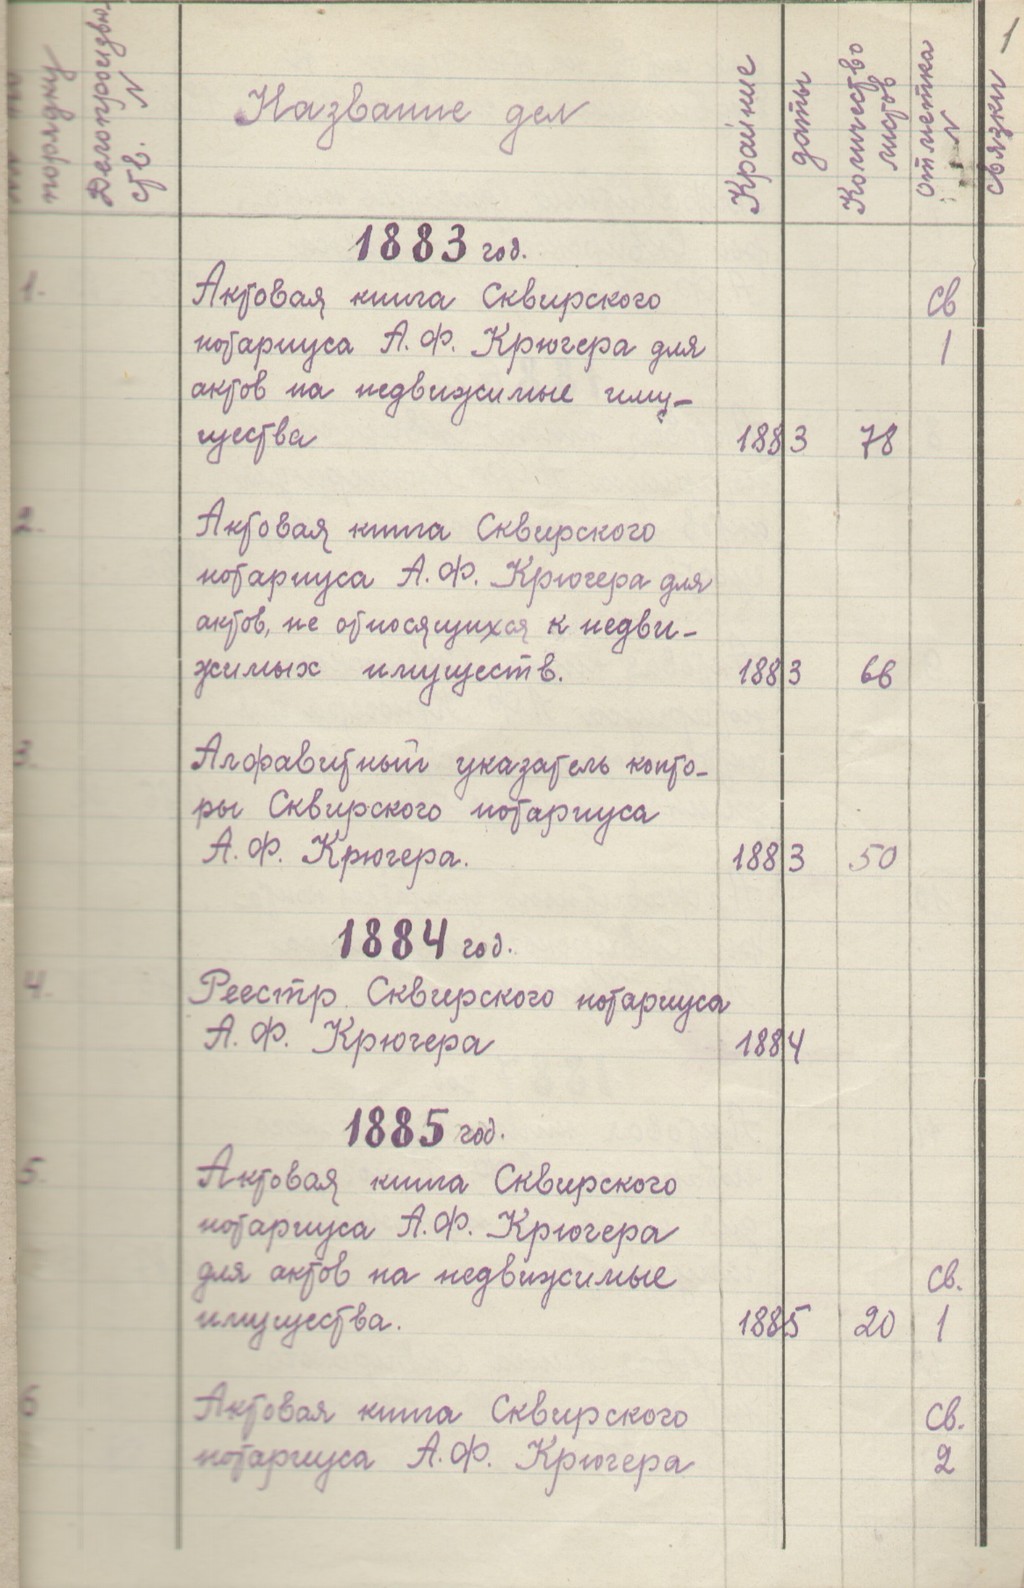 1
порядку
Делопроизво-
ств. N
Название дел
Крайние
даты
Количество
листов
Отметка
N
связки
1883 год.
1. Актовая книга Сквирского св
нотариуса А.Ф. Крюгера для 1
актов на недвижимые иму-
щества 1883 78
2. Актовая книга Сквирского
нотариуса А.Ф. Крюгера для
актов, не относящихся к недви-
жимых имуществ. 1883 66
3. Алфавитный указатель конто-
ры Сквирского нотариуса
А.Ф. Крюгера. 1883 50
1884 год.
4. Реестр Сквирского нотариуса
А.Ф. Крюгера 1884
1885 год.
5. Актовая книга Сквирского
нотариуса А.Ф. Крюгера
для актов на недвижимые св.
имущества. 1885 20 1
6 Актовая книга Сквирского св.
нотариуса А.Ф. Крюгера 2